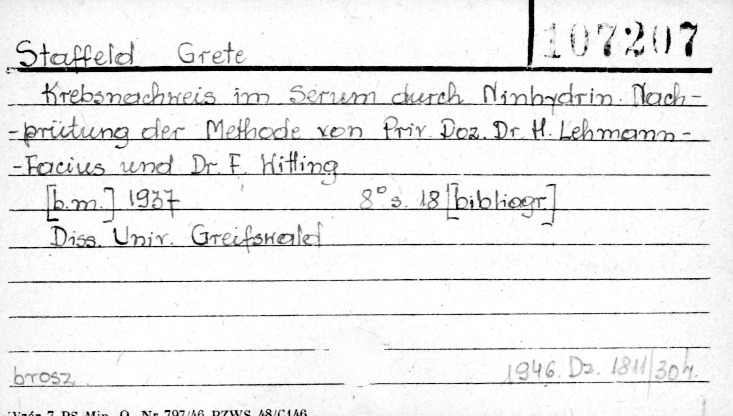 107207
Staffeld Grete
Krebsnachweis im Serum durch Ninhydrin. Nach-
-prüfung der Methode von Priv. Doz. Dr. H. Lehmann-
-Facius und Dr. F. Witting
[b.m.] 1937 8° s. 18 [bibliogr.]
Diss. Univ. Greifswald
brosz. 1946. Dz. 1811/30
Wzór 7 PS Min. O. Nr 797/46 PZWS 48/C146